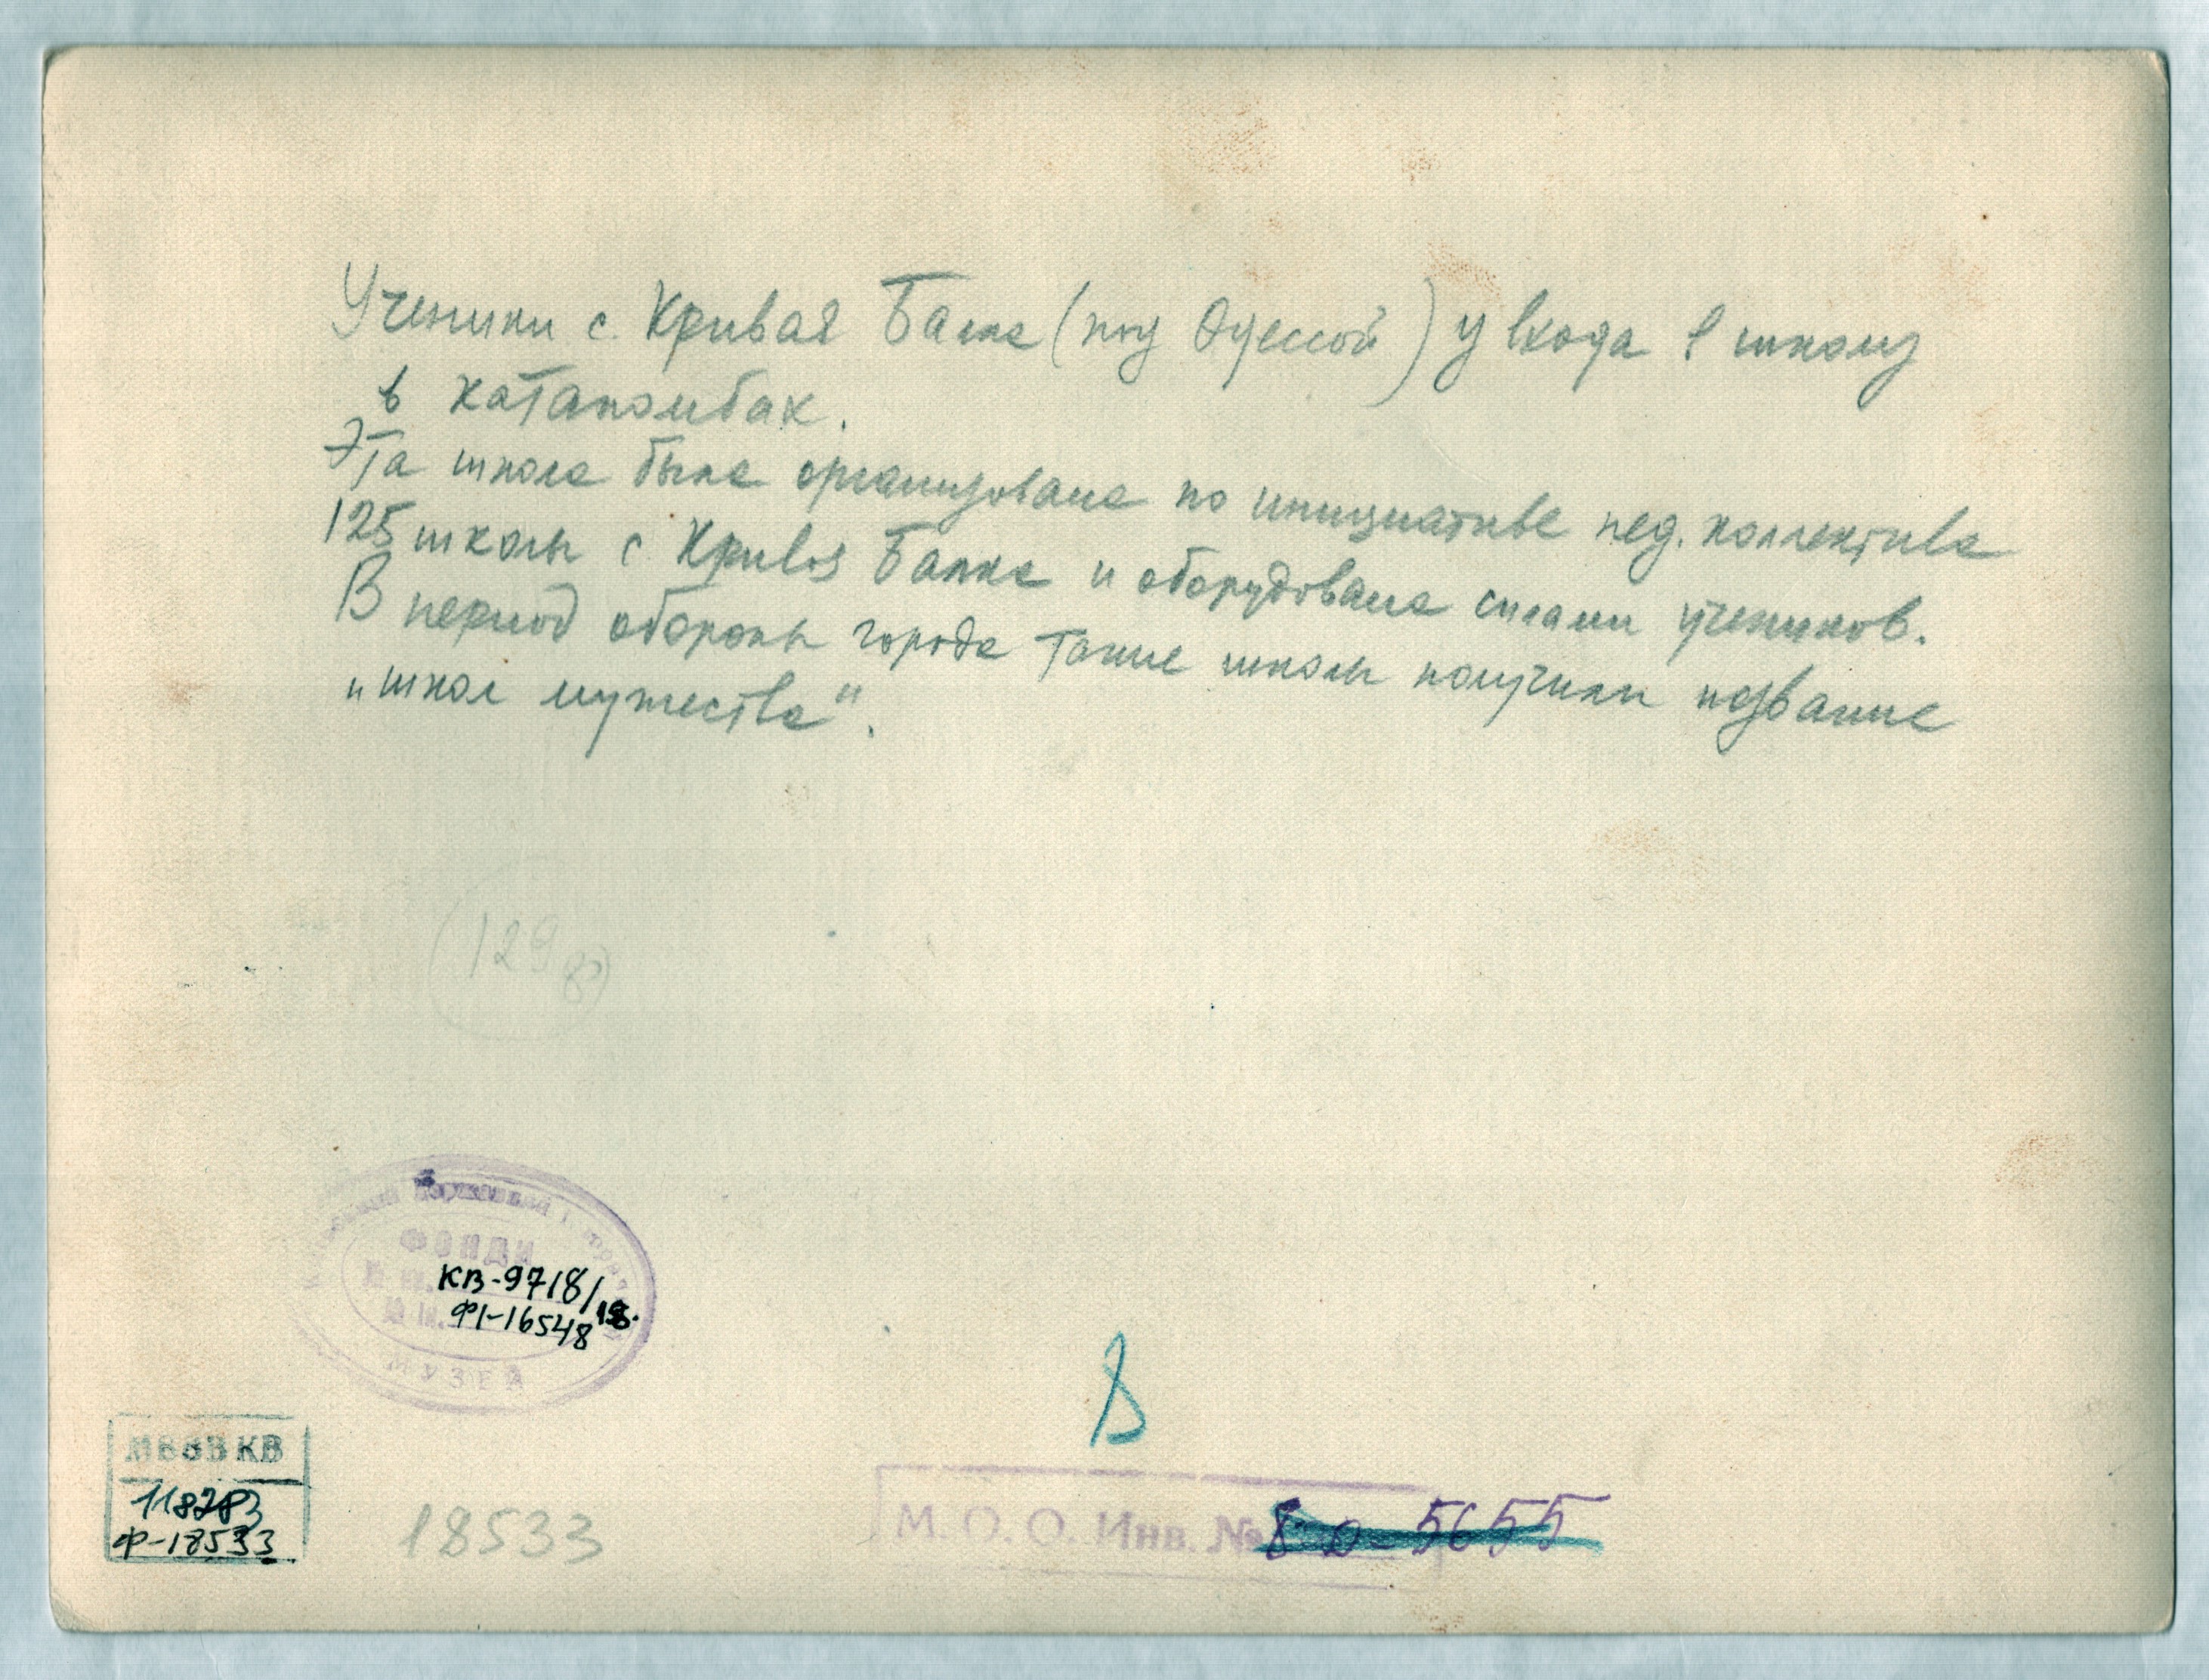 Ученики с. Кривая Балка (под Одессой) у входа в школу
в катакомбах.
Эта школа была организована по инициативе пед. коллектива
125 школы с. Кривоя Балка и оборудована силами учеников.
В период обороны города такие школы получили название
„школ мужества".
(129 8)
ФОНДИ
КВ-9718/18.
ФІ-16548
МУЗЕЙ
8
КВ
118783
Ф-18533
18533
М. О. О. Инв. № 80-5655